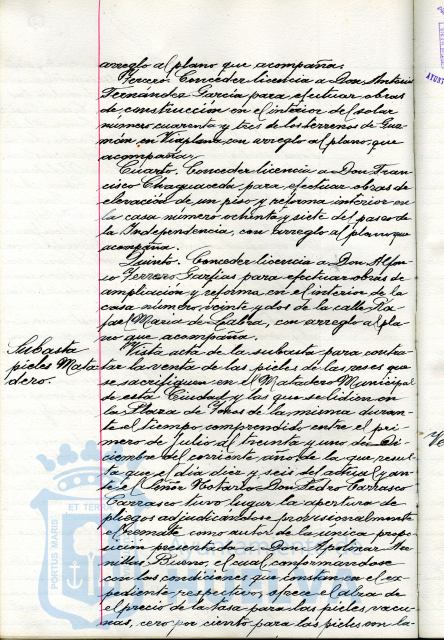 arreglo al plano que acompaña.
Tercero. Conceder licencia a Don Antonio
Fernández García para efectuar obras
de construcción en el interior del solar
número cuarenta y tres de los terrenos de Guz-
mán, en Viaplana, con arreglo al plano que
acompañan.
Cuarto. Conceder licencia a Don Fran-
cisco Chaguaceda para efectuar obras de
elevación de un piso y reforma interior en
la casa número ochenta y siete del paseo de
la Independencia, con arreglo al plano que
acompaña.
Quinto. Conceder licencia a Don Alfon-
so Ferrero Garfias para efectuar obras de
ampliación y reforma en el interior de la
casa número veinte y dos de la calle Ra-
fael María de Labra, con arreglo al pla-
no que acompaña.
Subasta
pieles Mata
dero.
Vista acta de la subasta para contra-
tar la venta de las pieles de las reses que
se sacrifiquen en el Matadero Municipal
de esta Ciudad y las que se lidien en
la Plaza de Toros de la misma duran-
te el tiempo comprendido entre el pri-
mero de Julio al treinta y uno de Di-
ciembre del corriente año de la que resul
ta que el día diez y seis del actual y an-
te el Señor Notario Don Pedro Carrasco
Carrasco, tuvo lugar la apertura de
pliegos adjudicándose provisionalmente
el remate como autor de la única propo-
sición presentada a Don Apolinar
Bueno, el cual conformándose
con las condiciones que constan en el ex-
pediente respectivo, ofrece el alza de
el precio de la tasa para las pieles vacu-
nas, cero por ciento para las pieles con la-
PORTUS MARIS
ET TERRAE
Ayuntamiento de
HUELVA